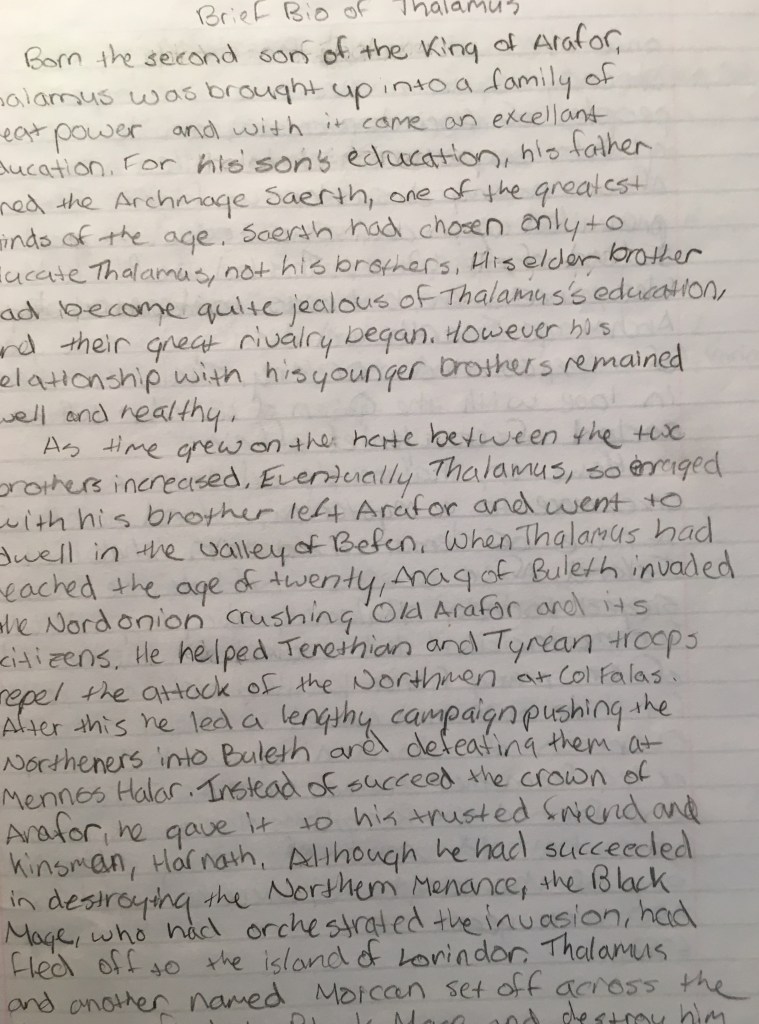 Brief Bio of Thalamus
Born the second son of the King of Arafor,
alamus was brought up into a family of
eat power and with it came an excellant
ducation. For his son's education, his father
red the Archmage Saerth, one of the greatest
inds of the age. Saerth had chosen only to
ucate Thalamus, not his brothers. His elder brother
ad become quite jealous of Thalamus's education,
nd their great rivalry began. However his
elationship with his younger brothers remained
well and healthy.
As time grew on the hate between the two
brothers increased. Eventually Thalamus, so enraged
with his brother left Arafor and went to
dwell in the valley of Befen. When Thalamus had
reached the age of twenty, Anaq of Buleth invaded
the Nordonion crushing Old Arafor and its
citizens. He helped Tenethian and Tyrean troops
repel the attack of the Northmen at Col Falas.
After this he led a lengthy campaign pushing the
Northeners into Buleth and defeating them at
Mennos Halar. Instead of succeed the crown of
Arafor, he gave it to his trusted friend and
kinsman, Harnath. Although he had succeeded
in destroying the Northern Menance, the Black
Mage, who had orchestrated the invasion, had
fled off to the island of Lorindor. Thalamus
and another named Morcan set off across the
and destroy him